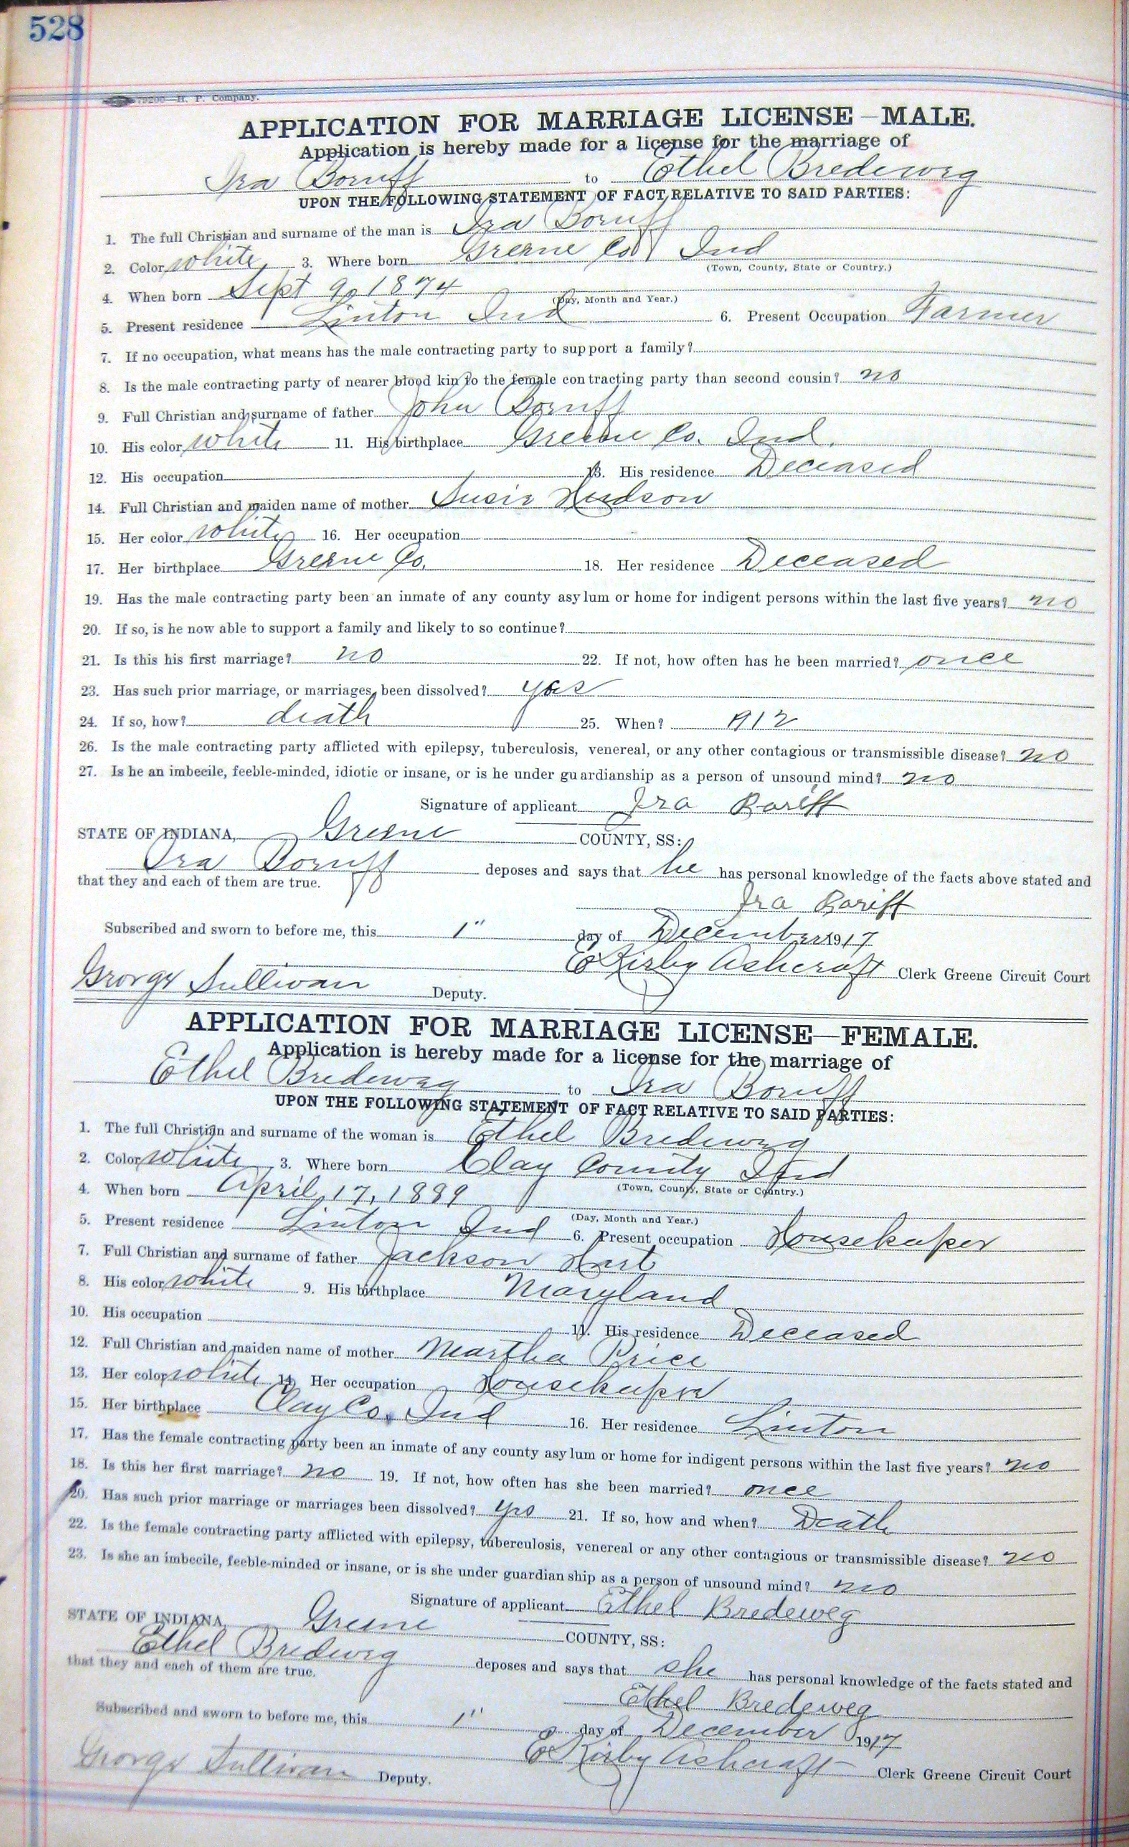 528
79200 H. P. Company.
APPLICATION FOR MARRIAGE LICENSE—MALE.
Application is hereby made for a license for the marriage of
Ira Boruff to Ethel Bredeweg
UPON THE FOLLOWING STATEMENT OF FACT RELATIVE TO SAID PARTIES:
1. The full Christian and surname of the man is Ira Boruff
2. Color white 3. Where born Greene Co Ind
(Town, County, State or Country.)
4. When born Sept 9, 1874
(Day, Month and Year.)
5. Present residence Linton Ind 6. Present Occupation Farmer
7. If no occupation, what means has the male contracting party to support a family?
8. Is the male contracting party of nearer blood kin to the female contracting party than second cousin? no
9. Full Christian and surname of father John Boruff
10. His color white 11. His birthplace Greene Co. Ind.
12. His occupation 13. His residence Deceased
14. Full Christian and maiden name of mother Susie Hudson
15. Her color white 16. Her occupation
17. Her birthplace Greene Co. 18. Her residence Deceased
19. Has the male contracting party been an inmate of any county asylum or home for indigent persons within the last five years? no
20. If so, is he now able to support a family and likely to so continue?
21. Is this his first marriage? no 22. If not, how often has he been married? once
23. Has such prior marriage, or marriages, been dissolved? yes
24. If so, how? death 25. When? 1912
26. Is the male contracting party afflicted with epilepsy, tuberculosis, venereal, or any other contagious or transmissible disease? no
27. Is he an imbecile, feeble-minded, idiotic or insane, or is he under guardianship as a person of unsound mind? no
Signature of applicant Ira Boriff
STATE OF INDIANA, Greene COUNTY, SS:
Ira Boruff deposes and says that he has personal knowledge of the facts above stated and
that they and each of them are true.
Ira Boriff
Subscribed and sworn to before me, this 1" day of December 1917
E Kirby Ashcraft Clerk Greene Circuit Court
George Sullivan Deputy.
APPLICATION FOR MARRIAGE LICENSE—FEMALE.
Application is hereby made for a license for the marriage of
Ethel Bredeweg to Ira Boruff
UPON THE FOLLOWING STATEMENT OF FACT RELATIVE TO SAID PARTIES:
1. The full Christian and surname of the woman is Ethel Bredeweg
2. Color white 3. Where born Clay County Ind
(Town, County, State or Country.)
4. When born April 17, 1889
(Day, Month and Year.)
5. Present residence Linton Ind 6. Present occupation Housekeeper
7. Full Christian and surname of father Jackson Hart
8. His color white 9. His birthplace Maryland
10. His occupation 11. His residence Deceased
12. Full Christian and maiden name of mother Martha Price
13. Her color white 14. Her occupation Housekeeper
15. Her birthplace Clay Co. Ind 16. Her residence Linton
17. Has the female contracting party been an inmate of any county asylum or home for indigent persons within the last five years? no
18. Is this her first marriage? no 19. If not, how often has she been married? once
20. Has such prior marriage or marriages been dissolved? yes 21. If so, how and when? Death
22. Is the female contracting party afflicted with epilepsy, tuberculosis, venereal or any other contagious or transmissible disease? no
23. Is she an imbecile, feeble-minded or insane, or is she under guardianship as a person of unsound mind? no
Signature of applicant Ethel Bredeweg
STATE OF INDIANA, Greene COUNTY, SS:
Ethel Bredweg deposes and says that she has personal knowledge of the facts stated and
that they and each of them are true.
Ethel Bredeweg
Subscribed and sworn to before me, this 1" day of December 1917
E Kirby Ashcraft Clerk Greene Circuit Court
George Sullivan Deputy.